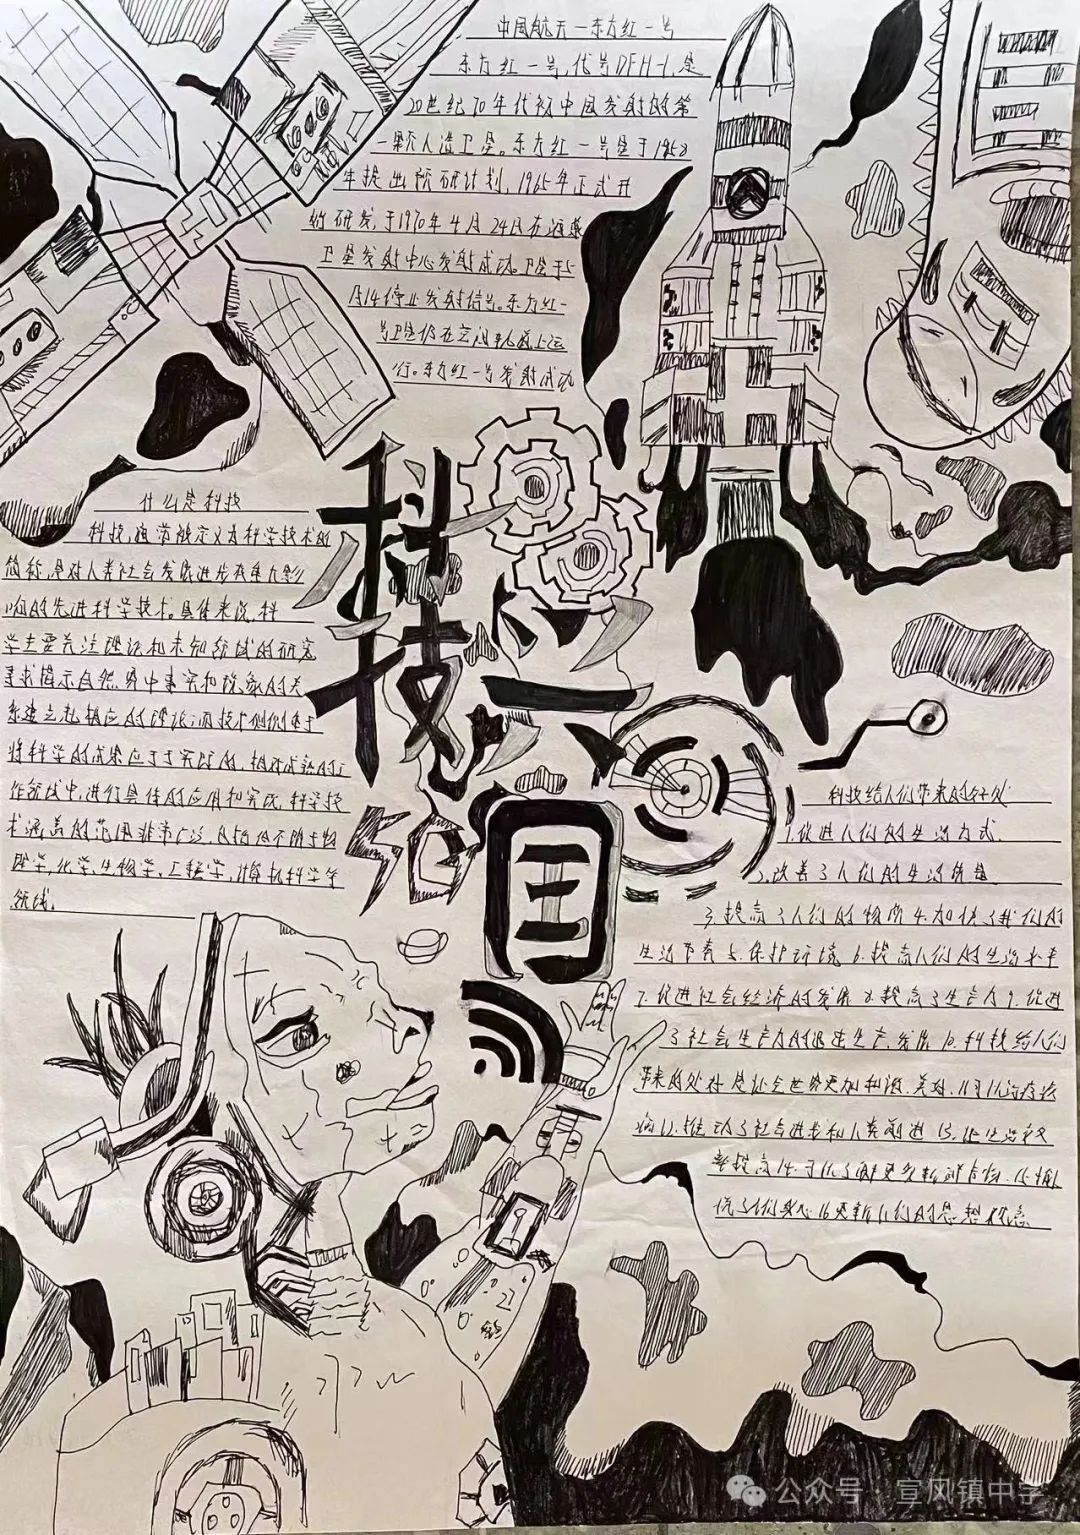 中国航天—东方红一号
东方红一号,代号DFH-1,是
20世纪70年代初中国发射的第
一颗人造卫星。东方红一号是于1958
年提出预研计划,1965年正式开
始研发,于1970年4月24日在酒泉
卫星发射中心发射成功。卫星于5
月14停止发射信号。东方红一
号卫星仍在空间轨道上运
行。东方红一号发射成功
科技兴国
5G
什么是科技
科技,通常被定义为科学技术的
简称,是对人类社会发展进步有重大影
响的先进科学技术。具体来说,科
学主要关注理论和未知领域的研究
寻求揭示自然界中事实和现象的关
系建立起相应的理论;而技术则侧重于
将科学的成果应于于实际的,相对成熟的工
作领域中,进行具体的应用和实现,科学技
术涵盖的范围非常广泛,包括但不限于物
理学,化学,生物学,工程学,计算机科学等
领域。
科技给人们带来的好处
1.促进人们的生活方式.
2.改善了人们的生活质量
3.提高了人们的物质4.加快了我们的
生活节奏5.保护环境6.提高人们的生活水平
7.促进社会经济的发展8.提高了生产力9.促进
了社会生产力的迅速生产,发展10.科技给人们
带来的处好是让全世界更加和谐.美好.11可以治疗疾
病12.推动了社会进步和人类前进13.让生活效
率提高14.可以了解更多新鲜事物.15.愉
悦了人们身心16更新人们的思想状态
公众号·宣风镇中学